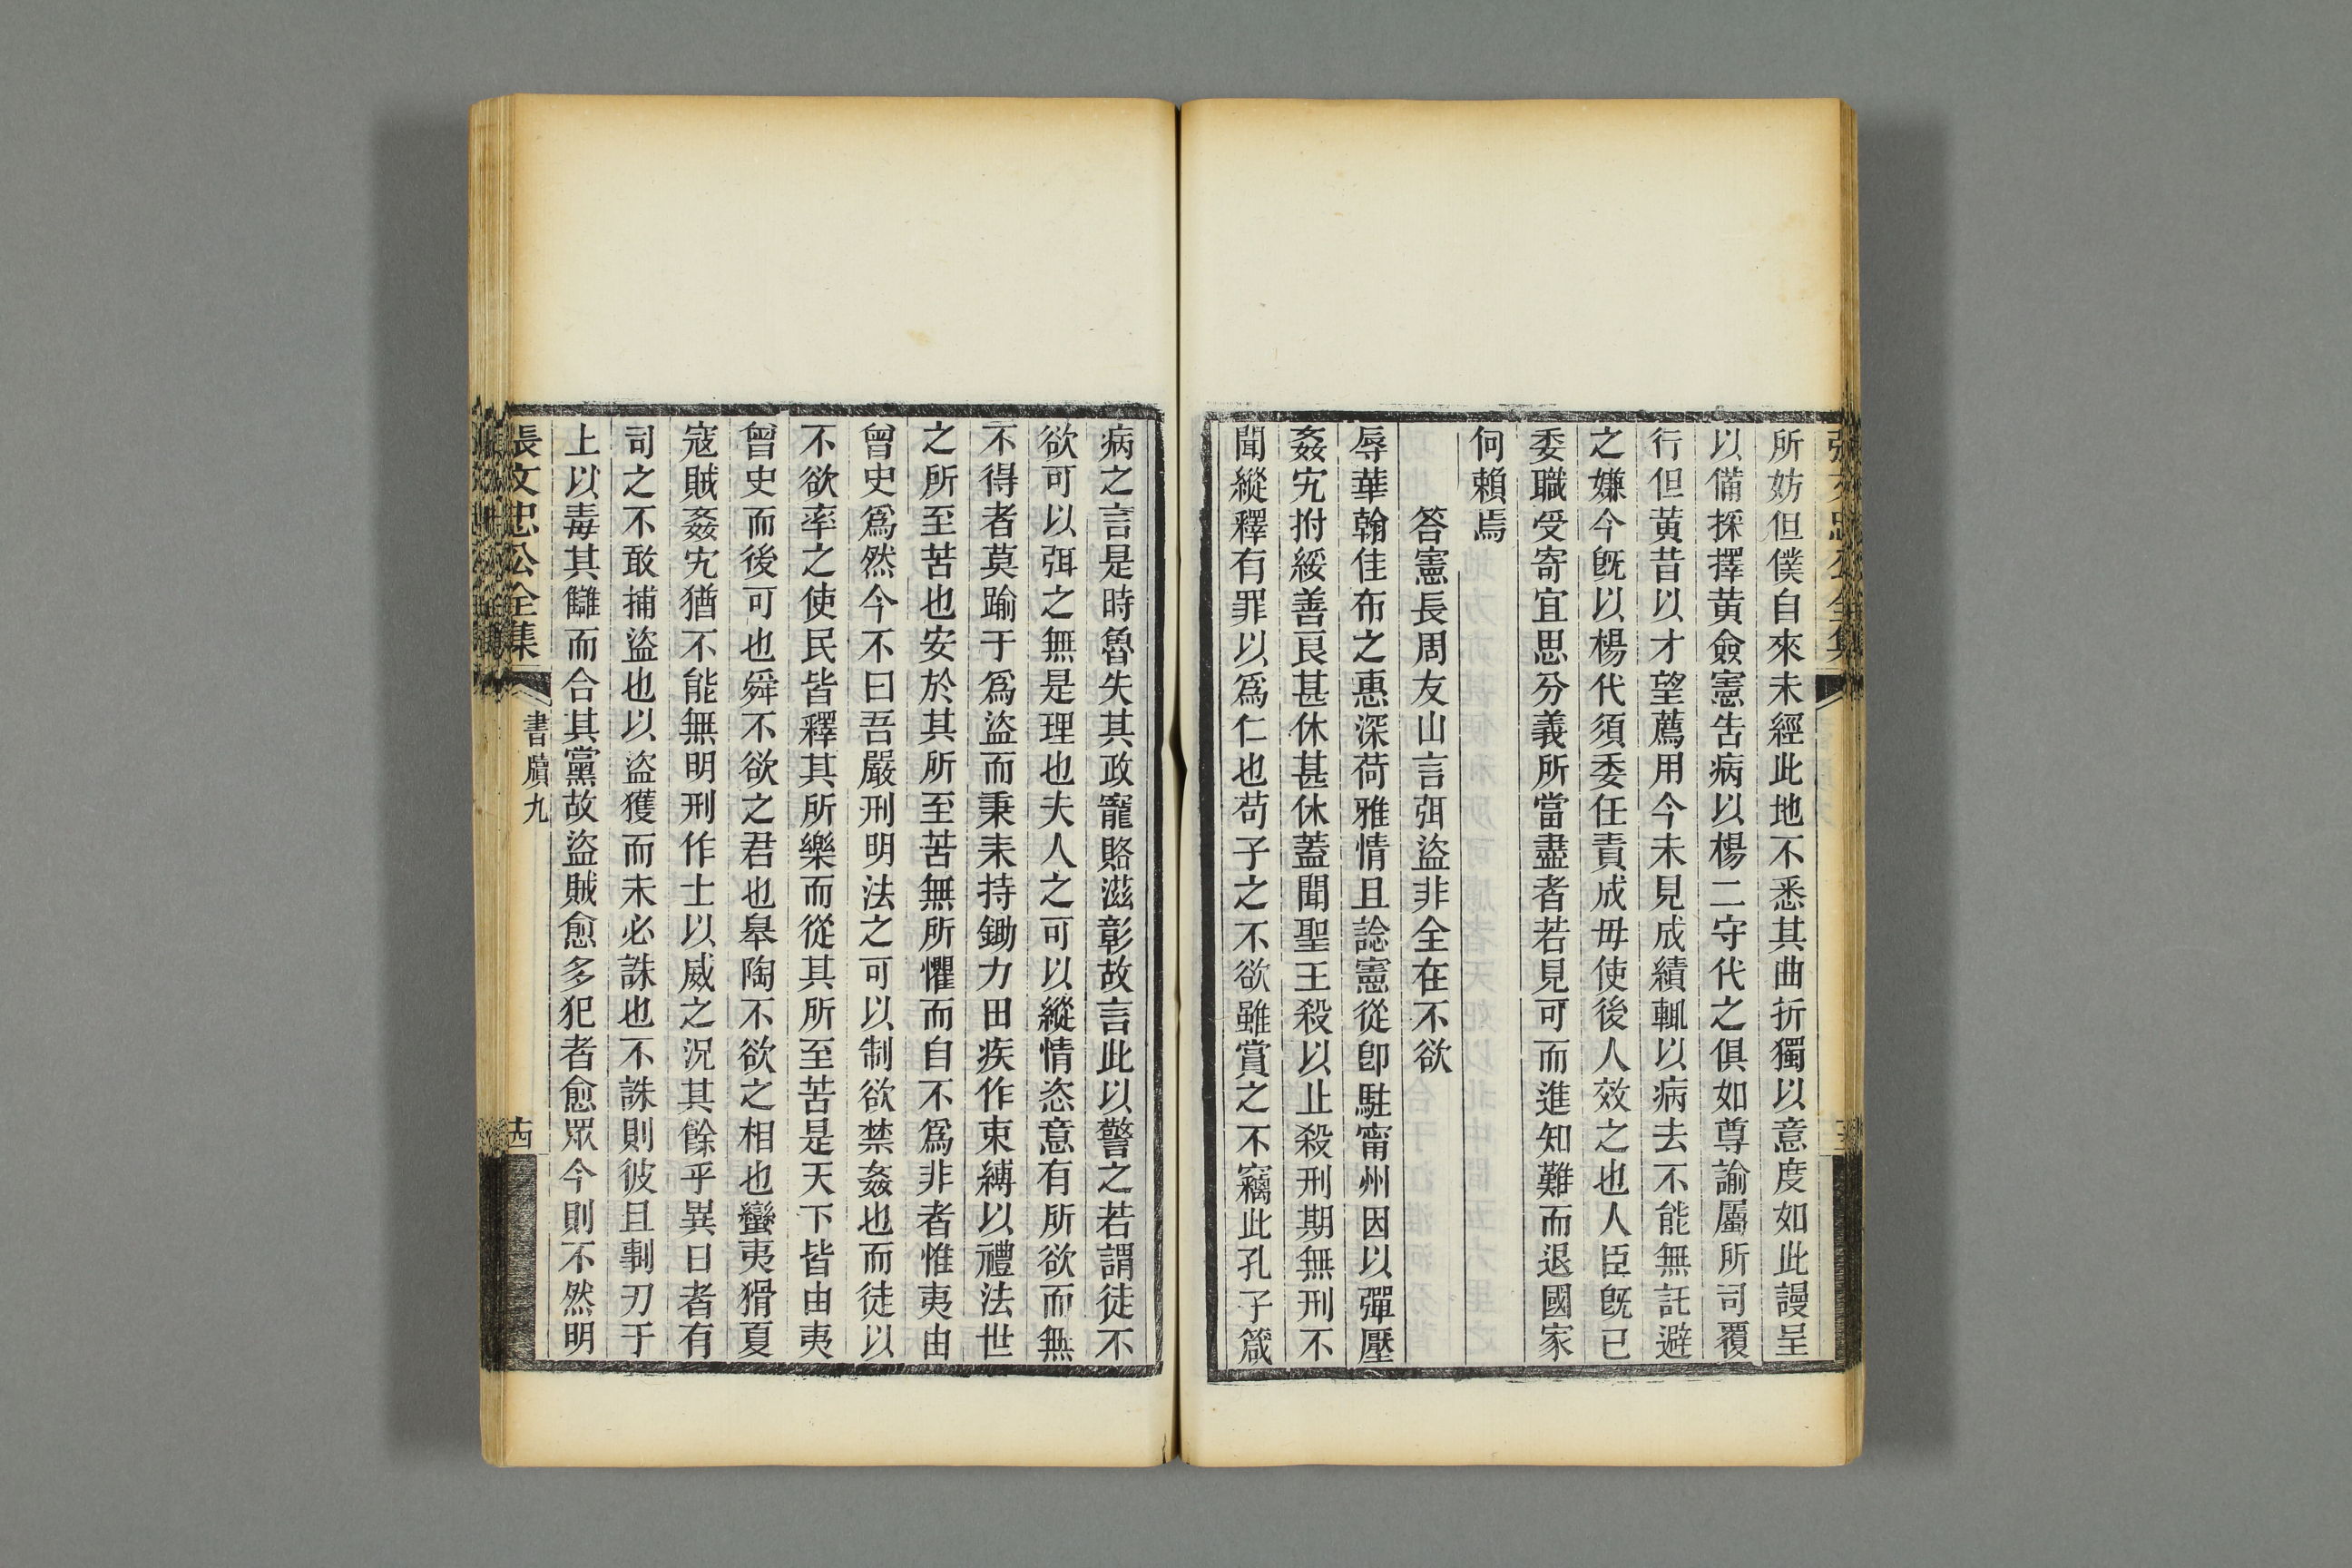 張文忠公全集
所妨但僕自來未經此地不悉其曲折獨以意度如此謾呈
以備採擇黃僉憲告病以楊二守代之俱如尊諭屬所司覆
行但黃昔以才望薦用今未見成績輒以病去不能無託避
之嫌今旣以楊代須委任責成毋使後人效之也人臣旣已
委職受寄宜思分義所當盡者若見可而進知難而退國家
何賴焉
答憲長周友山言弭盜非全在不欲
辱華翰佳布之惠深荷雅情且諗憲從卽駐甯州因以彈壓
姦宄拊綏善良甚休甚休蓋聞聖王殺以止殺刑期無刑不
聞縱釋有罪以爲仁也苟子之不欲雖賞之不竊此孔子箴
病之言是時魯失其政寵賂滋彰故言此以警之若謂徒不
欲可以弭之無是理也夫人之可以縱情恣意有所欲而無
不得者莫踰于爲盜而秉耒持鋤力田疾作束縛以禮法世
之所至苦也安於其所至苦無所懼而自不爲非者惟夷由
曾史爲然今不曰吾嚴刑明法之可以制欲禁姦也而徒以
不欲率之使民皆釋其所樂而從其所至苦是天下皆由夷
曾史而後可也舜不欲之君也皋陶不欲之相也蠻夷猾夏
寇賊姦宄猶不能無明刑作士以威之況其餘乎異日者有
司之不敢捕盜也以盜獲而未必誅也不誅則彼且剚刃于
上以毒其讎而合其黨故盜賊愈多犯者愈眾今則不然明
張文忠公全集
書牘九
十四